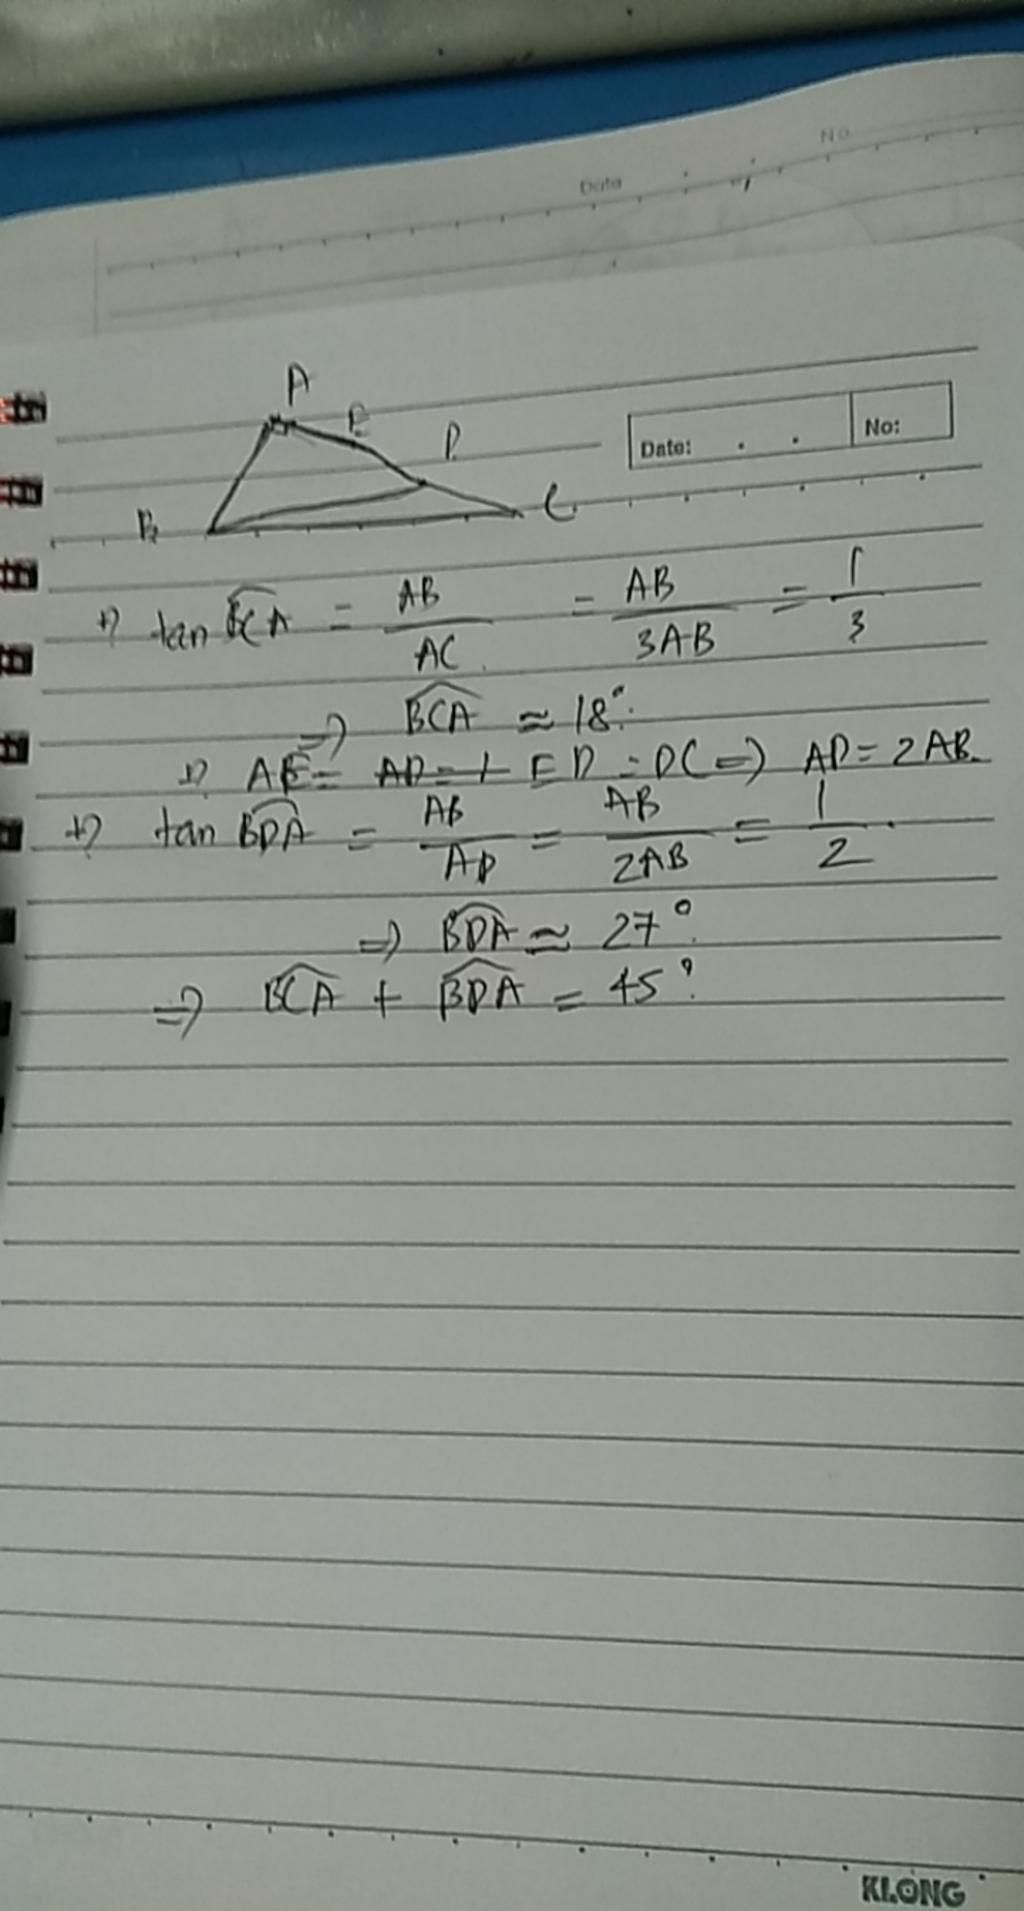 No
Date
A
E
D
Date: . . No:
B
C
+) tan BCA = AB/AC = AB/3AB = 1/3
=> BCA ≈ 18°.
+) AE = ED = DC => AD = 2AB.
+) tan BDA = AB/AD = AB/2AB = 1/2.
=> BDA ≈ 27°.
=> BCA + BDA = 45°.
KLONG